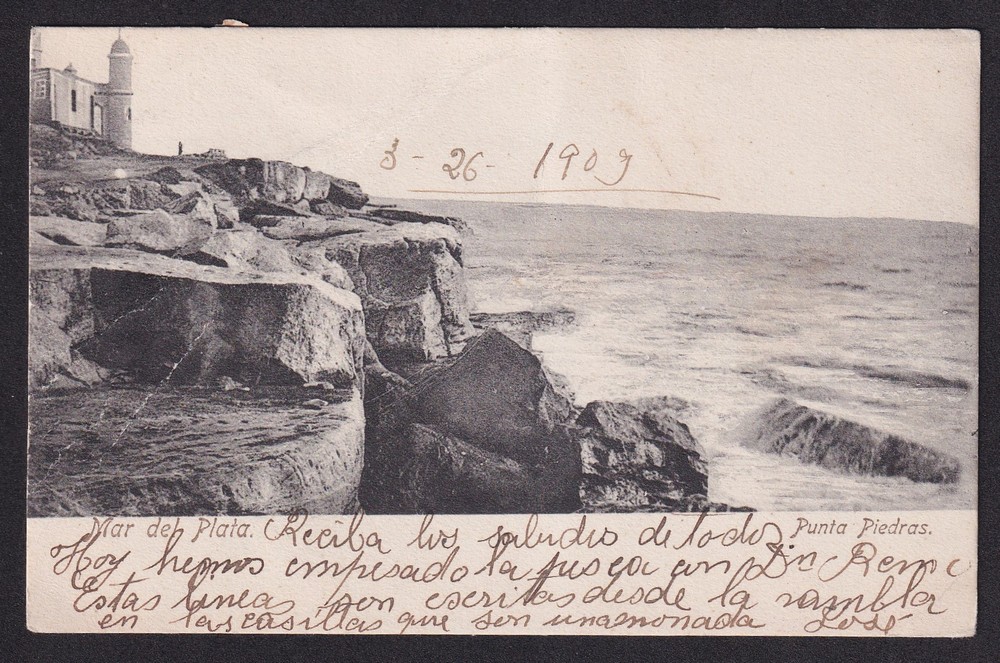 3 - 26 - 1909
Mar del Plata.
Punta Piedras.
Reciba los saludos de todos
Hoy hemos empesado la pesca con Dn Remo
Estas lineas son escritas desde la rambla
en las casillas que son una monada José